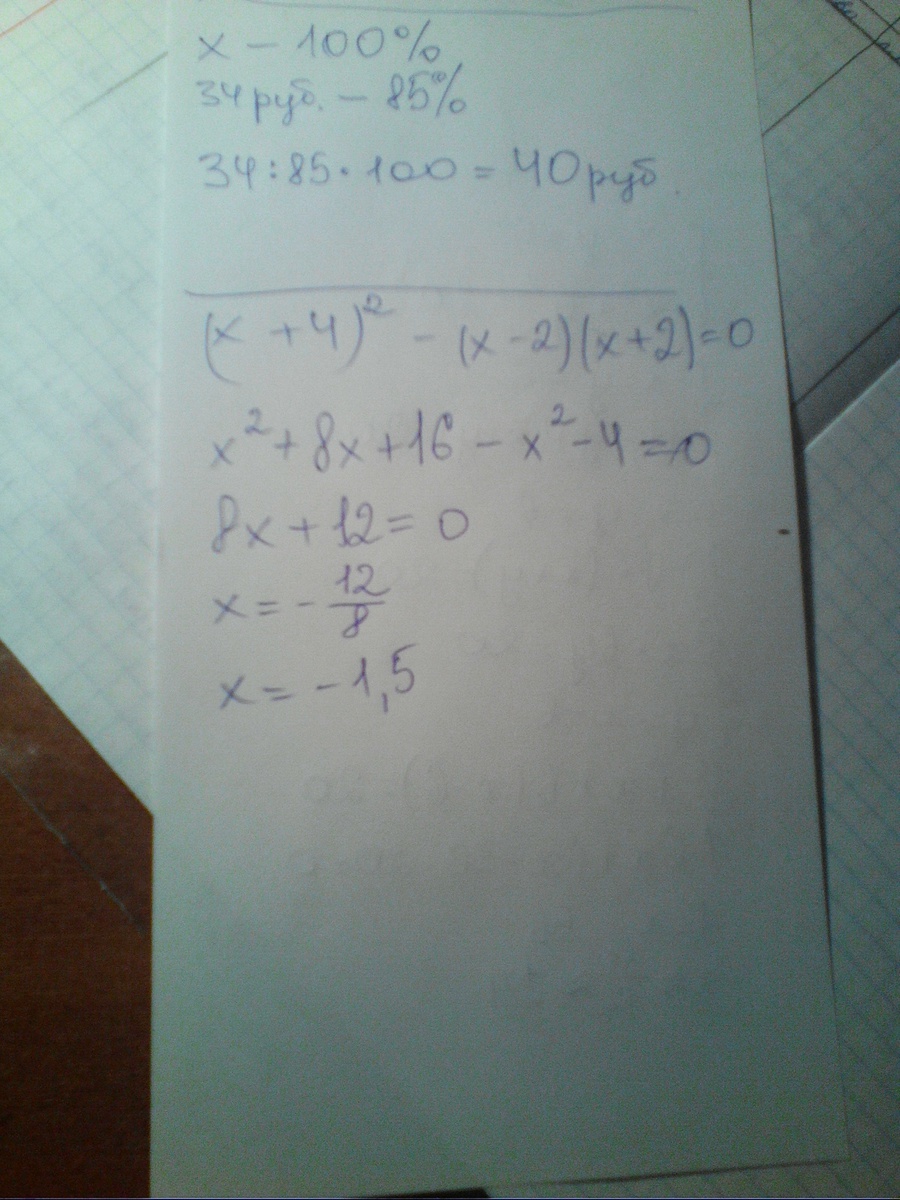 x – 100%
34 руб. – 85%
34:85·100 = 40 руб.
(x + 4)² - (x - 2)(x + 2) = 0
x² + 8x + 16 - x² - 4 = 0
8x + 12 = 0
x = - 12/8
x = - 1,5